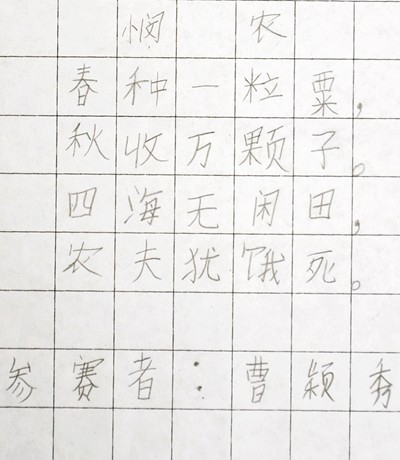 悯农
春种一粒粟，
秋收万颗子。
四海无闲田，
农夫犹饿死。
参赛者：曹颖秀